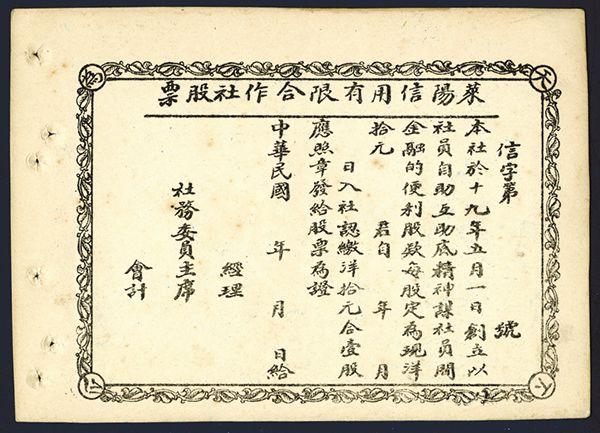 萊陽信用有限合作社股票
信字第 號
本社於十九年五月一日創立以
社員自助互助底精神謀社員間
金融的便利股欵每股定為現洋
拾元 君自 年 月
日入社認繳洋拾元合壹股
應照章發給股票為證
中華民國 年 月 日給
經理
社務委員主席
會計
天
下
為
公